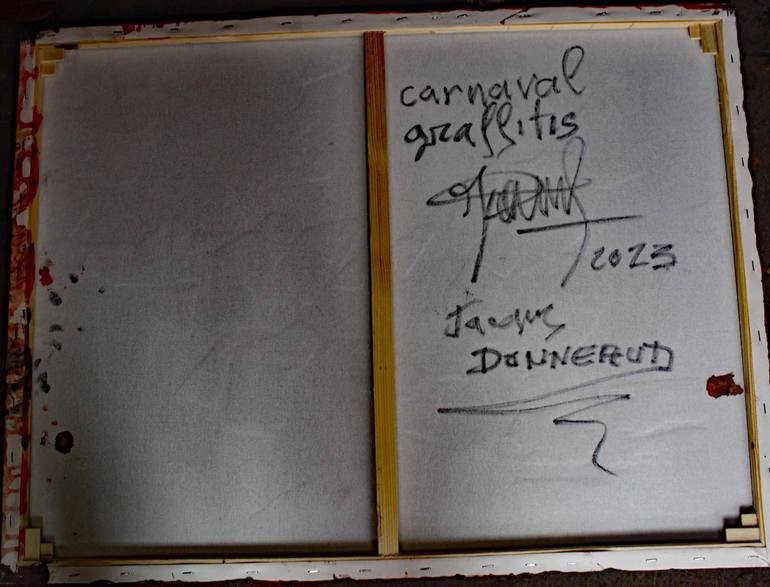 carnaval
graffitis
2023
Jacques
DONNEFAUD